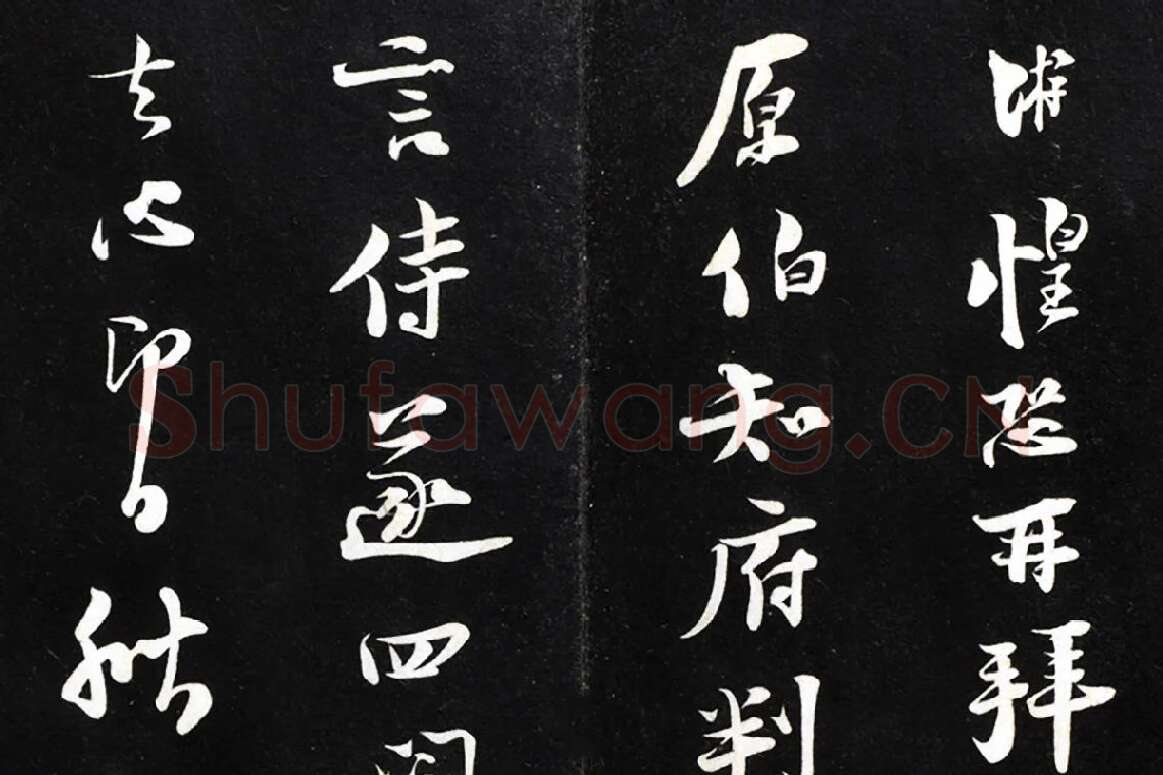 游惶恐再拜
原伯知府判
言侍遂四閱
去心即日秋
Shufawang.CN